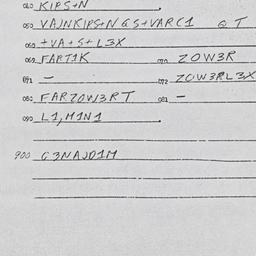 040 KIPS+N
050 VAJNKIPS+N G S+VARC1 Q T
060 +VA+S+L3X
069 FART1K 070 ZOW3R
071 – 072 ZOW3RL3X
080 FARZOW3RT 081 –
090 L1, M1N1
900 G3NAJD1M